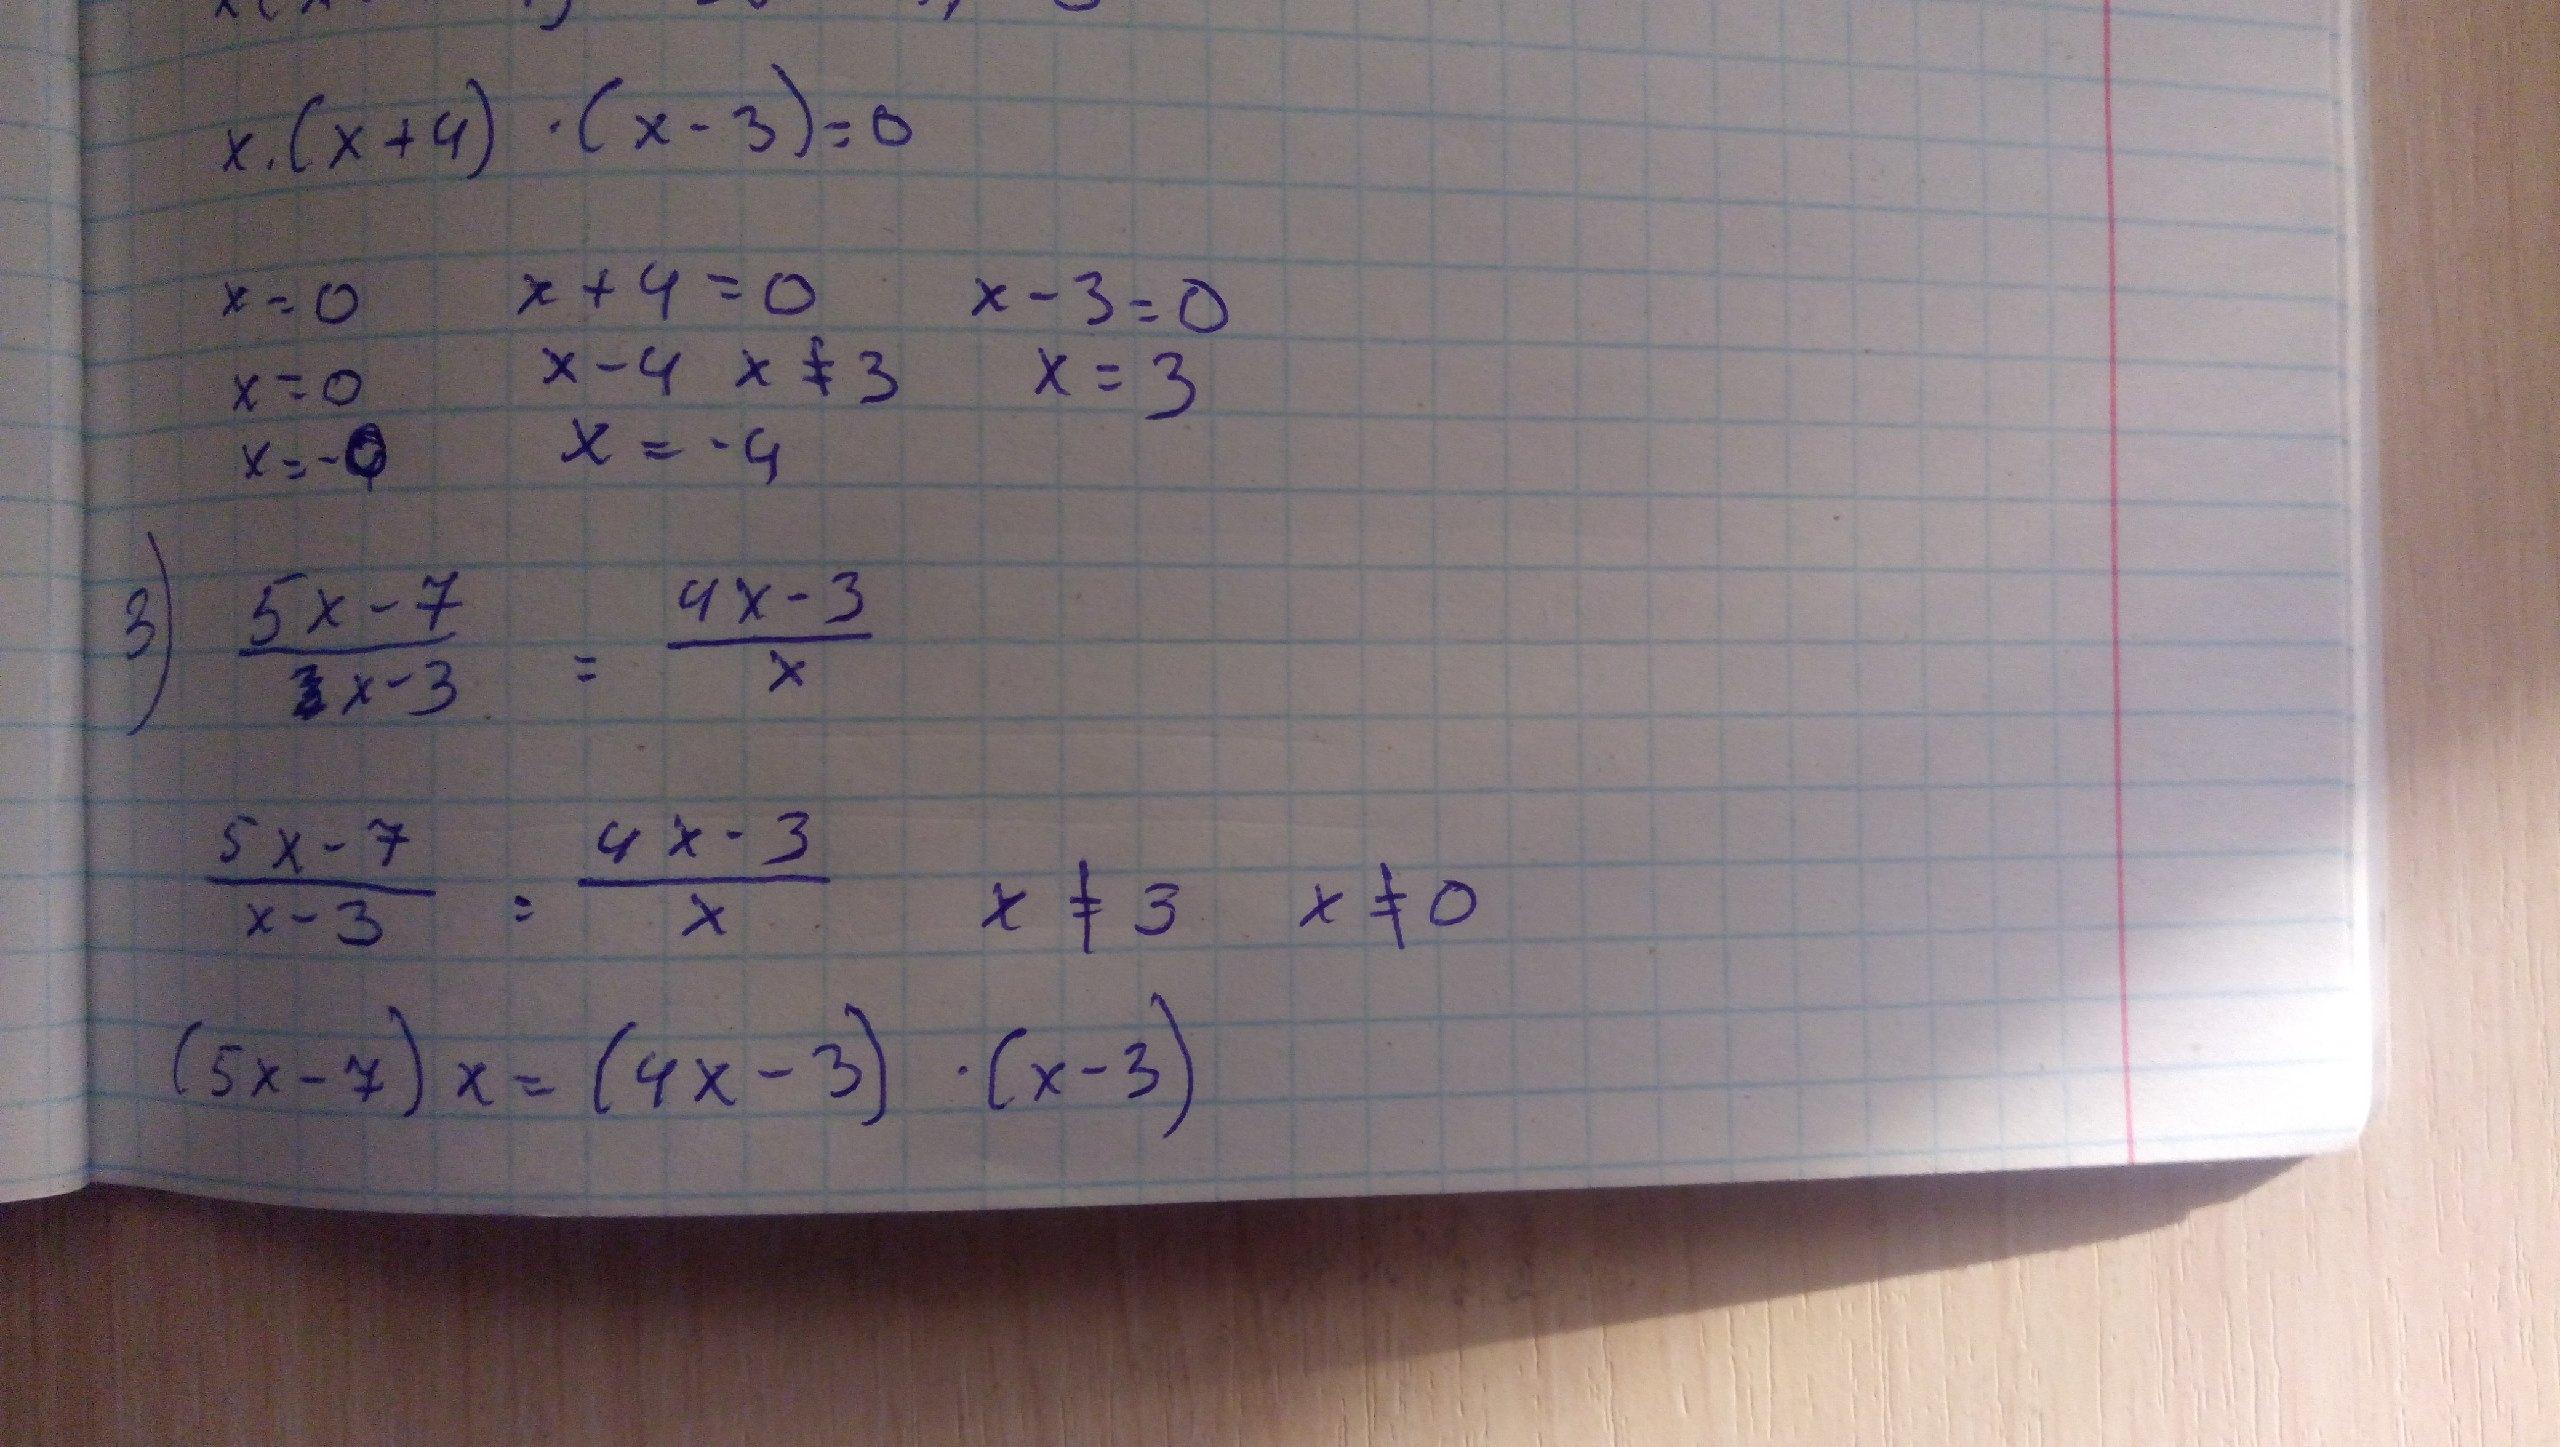 x.(x+4) ·(x-3)=0
x=0 x+4=0 x-3=0
x=0 x-4 x≠3 x=3
x=- x=-4
3) (5x-7)/(x-3) = (4x-3)/x
(5x-7)/(x-3) = (4x-3)/x x≠3 x≠0
(5x-7)x=(4x-3) ·(x-3)